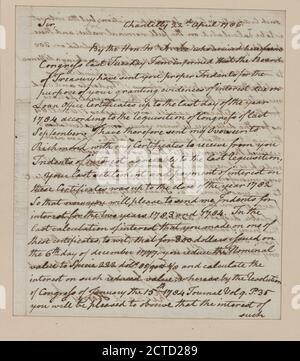 Sir, Chantilly 22d April 1786
By the Hon. Mr. who arrived here from
Congress last Tuesday I am informed that the Board
of Treasury have sent you proper Indents for the
purpose of your granting evidences of interest due on
Loan Office Certificates up to the last day of the year
1784 according to the requisition of Congress of last
September. I have therefore sent my Overseer to
Richmond with my Certificates to receive from you
Indents of interest agreeably to the last requisition,
Your last settlement and payment of interest on
these Certificates was up to the close of the year 1782
So that now you will please to send me Indents for
interest for the two years 1783 and 1784. In the
last calculation of interest that you made on one of
these certificates to wit, that for 300 dollars issued on
the 6th day of december 1777, you reduce the Nominal
value to Specie 222 doll. and calculate the
interest on such reduced value whereas by the Resolution
of Congress of January the 1784 Journal Vol. 9. P. 35
you will be pleased to observe that the interest of
such
alamy
Image ID: 2CTD289
www.alamy.com